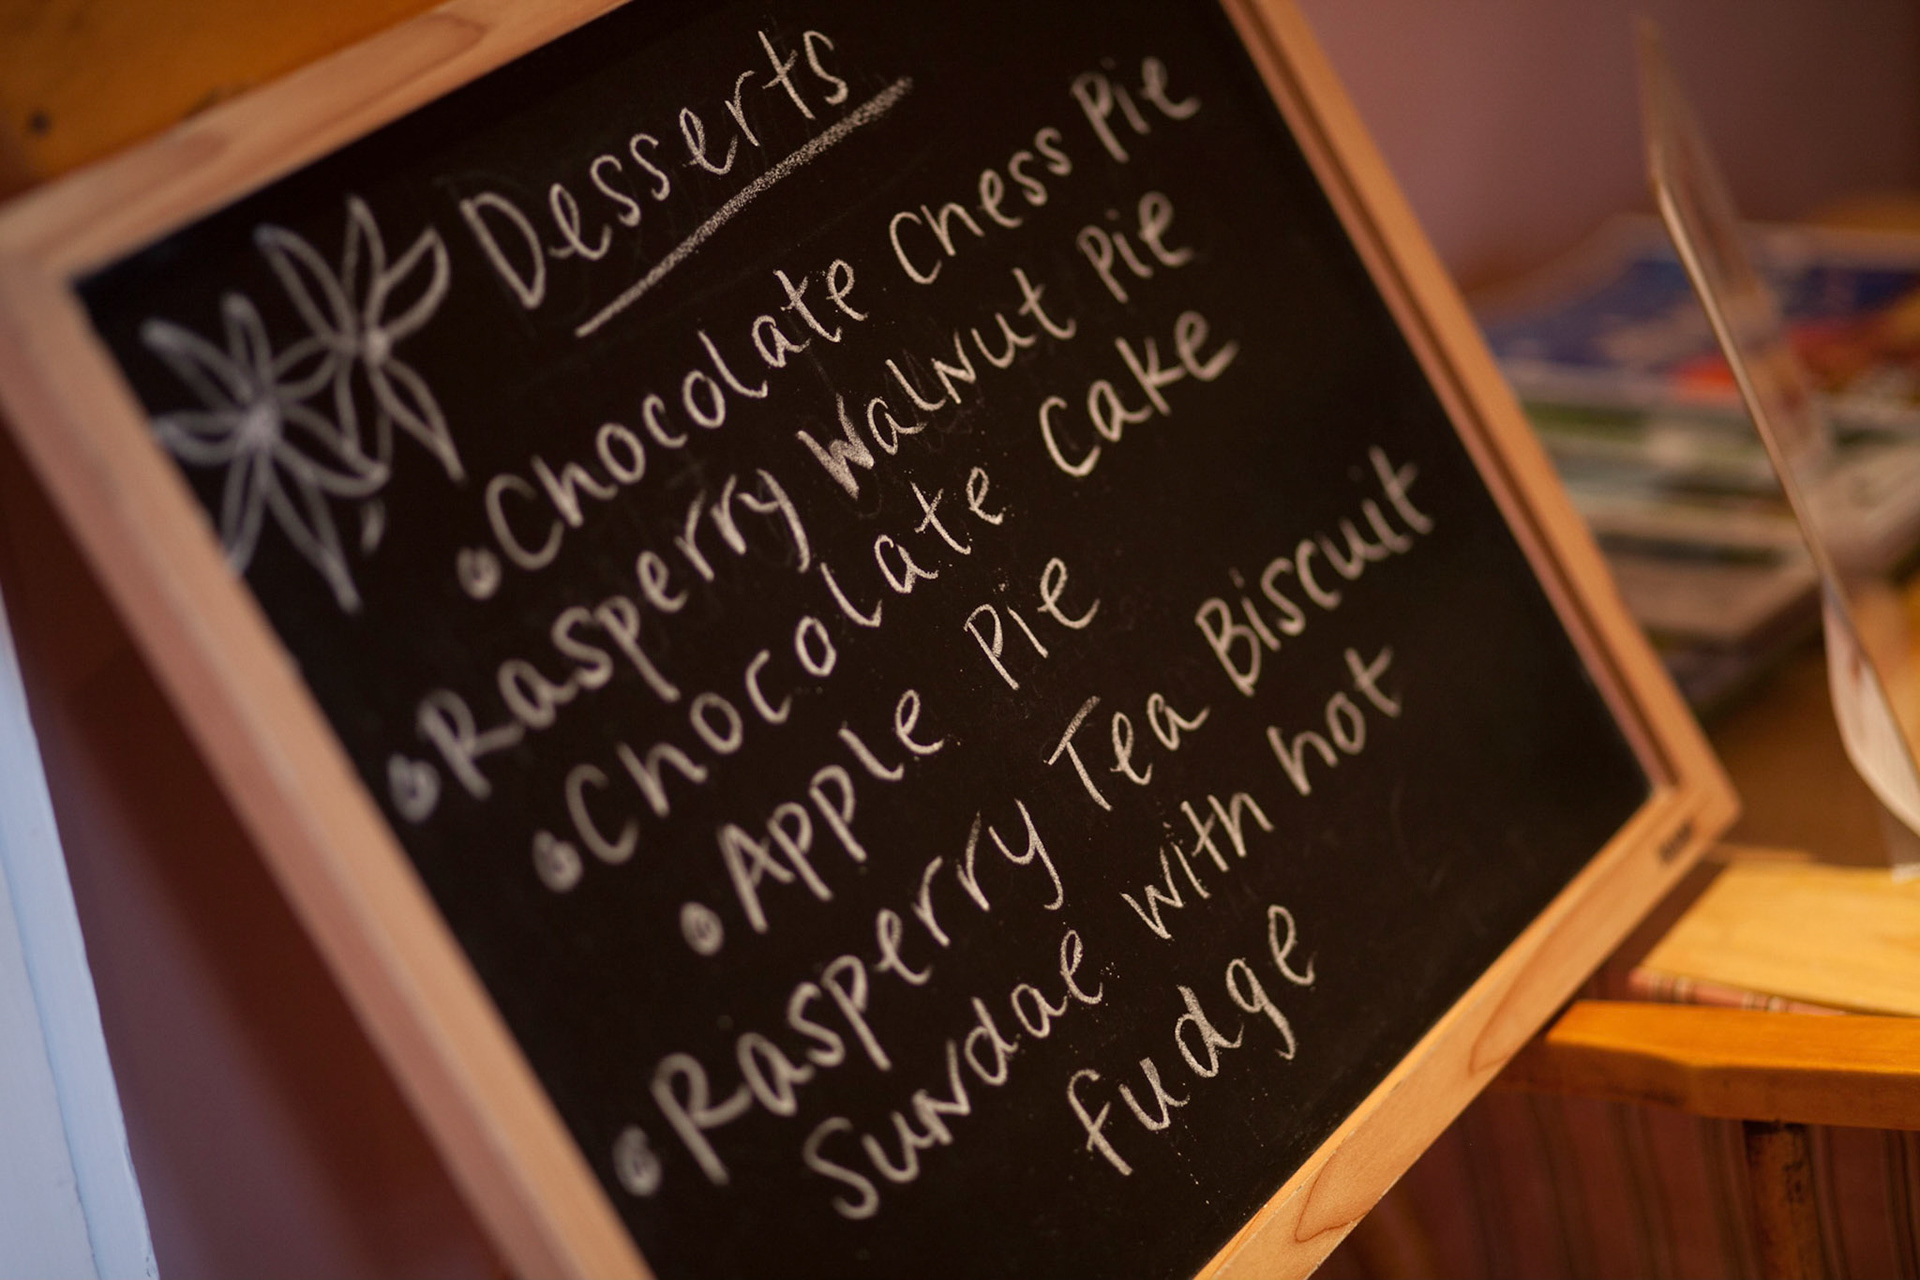 Desserts
Chocolate Chess Pie
Raspberry Walnut Pie
Chocolate Cake
Apple Pie
Rasperry Tea Biscuit
Sundae with hot
fudge